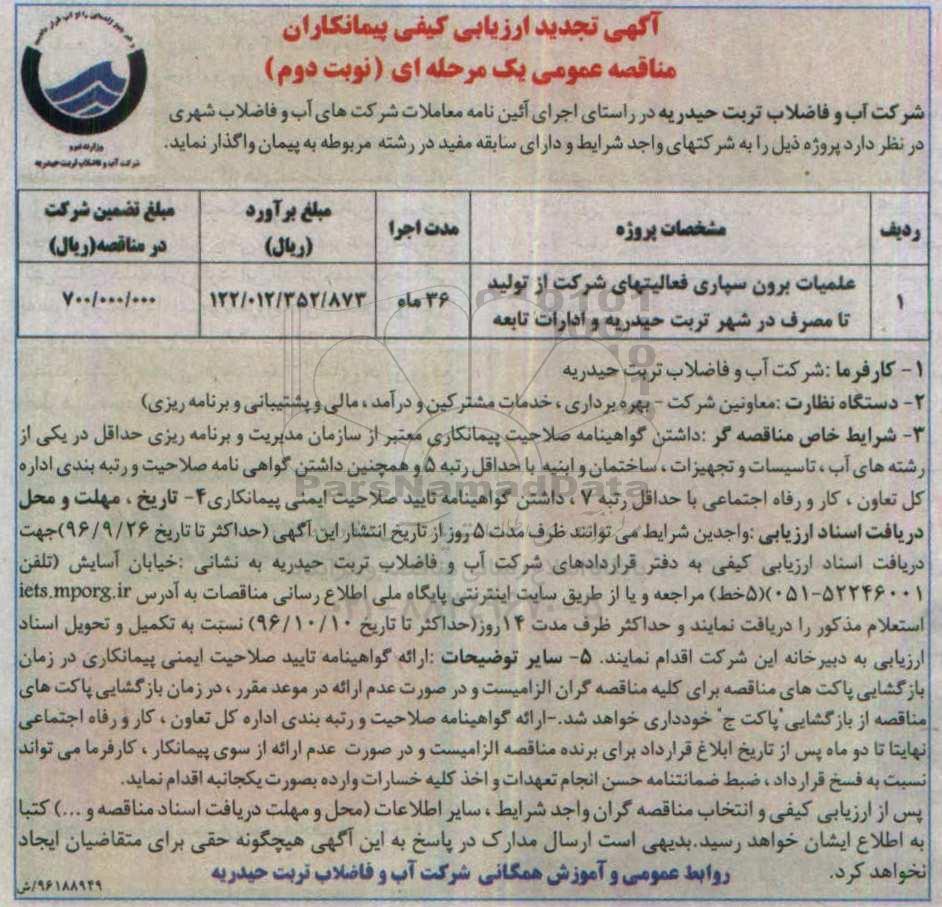 آگهی تجدید ارزیابی کیفی پیمانکاران
مناقصه عمومی یک مرحله ای (نوبت دوم)
وزارت نیرو
شرکت آب و فاضلاب تربت حیدریه
شرکت آب و فاضلاب تربت حیدریه در راستای اجرای آئین نامه معاملات شرکت های آب و فاضلاب شهری
در نظر دارد پروژه ذیل را به شرکتهای واجد شرایط و دارای سابقه مفید در رشته مربوطه به پیمان واگذار نماید.
ردیف مشخصات پروژه مدت اجرا مبلغ برآورد (ریال) مبلغ تضمین شرکت در مناقصه(ریال)
۱ علمیات برون سپاری فعالیتهای شرکت از تولید تا مصرف در شهر تربت حیدریه و ادارات تابعه ۳۶ ماه ۱۲۲/۰۱۲/۳۵۲/۸۷۳ ۷۰۰/۰۰۰/۰۰۰
۱- کارفرما :شرکت آب و فاضلاب تربت حیدریه
۲- دستگاه نظارت :معاونین شرکت - بهره برداری ، خدمات مشترکین و درآمد ، مالی و پشتیبانی و برنامه ریزی)
۳- شرایط خاص مناقصه گر :داشتن گواهینامه صلاحیت پیمانکاری معتبر از سازمان مدیریت و برنامه ریزی حداقل در یکی از
رشته های آب ، تاسیسات و تجهیزات ، ساختمان و ابنیه با حداقل رتبه ۵ و همچنین داشتن گواهی نامه صلاحیت و رتبه بندی اداره
کل تعاون ، کار و رفاه اجتماعی با حداقل رتبه ۷ ، داشتن گواهینامه تایید صلاحیت ایمنی پیمانکاری۴- تاریخ ، مهلت و محل
دریافت اسناد ارزیابی :واجدین شرایط می توانند ظرف مدت ۵ روز از تاریخ انتشار این آگهی (حداکثر تا تاریخ ۹۶/۹/۲۶)جهت
دریافت اسناد ارزیابی کیفی به دفتر قراردادهای شرکت آب و فاضلاب تربت حیدریه به نشانی :خیابان آسایش (تلفن
۰۵۱-۵۲۲۴۶۰۰۱)(۵خط) مراجعه و یا از طریق سایت اینترنتی پایگاه ملی اطلاع رسانی مناقصات به آدرس iets.mporg.ir
استعلام مذکور را دریافت نمایند و حداکثر ظرف مدت ۱۴روز(حداکثر تا تاریخ ۹۶/۱۰/۱۰) نسبت به تکمیل و تحویل اسناد
ارزیابی به دبیرخانه این شرکت اقدام نمایند. ۵- سایر توضیحات :ارائه گواهینامه تایید صلاحیت ایمنی پیمانکاری در زمان
بازگشایی پاکت های مناقصه برای کلیه مناقصه گران الزامیست و در صورت عدم ارائه در موعد مقرر ، در زمان بازگشایی پاکت های
مناقصه از بازگشایی"پاکت ج" خودداری خواهد شد.-ارائه گواهینامه صلاحیت و رتبه بندی اداره کل تعاون ، کار و رفاه اجتماعی
نهایتا تا دو ماه پس از تاریخ ابلاغ قرارداد برای برنده مناقصه الزامیست و در صورت عدم ارائه از سوی پیمانکار ، کارفرما می تواند
نسبت به فسخ قرارداد ، ضبط ضمانتنامه حسن انجام تعهدات و اخذ کلیه خسارات وارده بصورت یکجانبه اقدام نماید.
پس از ارزیابی کیفی و انتخاب مناقصه گران واجد شرایط ، سایر اطلاعات (محل و مهلت دریافت اسناد مناقصه و ...) کتبا
به اطلاع ایشان خواهد رسید.بدیهی است ارسال مدارک در پاسخ به این آگهی هیچگونه حقی برای متقاضیان ایجاد
نخواهد کرد.
روابط عمومی و آموزش همگانی شرکت آب و فاضلاب تربت حیدریه
۹۶۱۸۸۹۴۹/ش
ParsNamadData